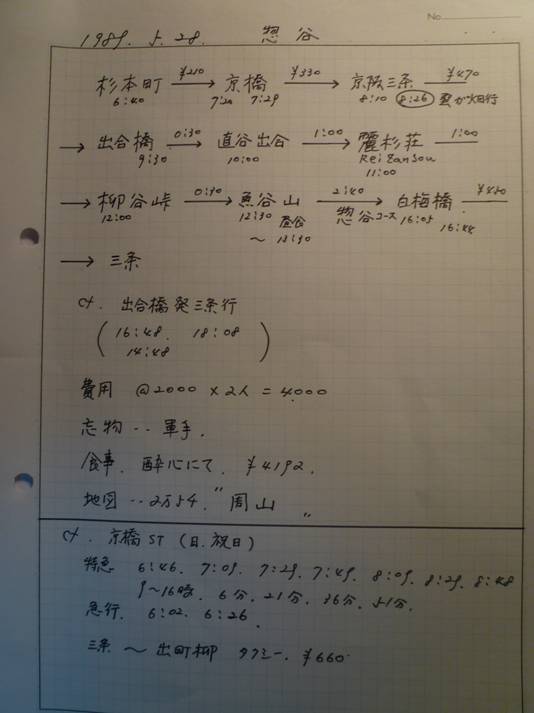 No.
1989. 5. 28. 惣谷
杉本町 ¥210 → 京橋 ¥330 → 京阪三条 ¥470
6:40 7:20 7:29 8:10 8:26 雲ケ畑行
→ 出合橋 0:30 → 直谷出合 1:00 → 麗杉荘 1:00
9:30 10:00 ReiZanSou
11:00
→ 柳谷峠 0:30 → 魚谷山 2:40 → 白梅橋 ¥450
12:00 12:30 昼食 惣谷コース 16:05
～ 13:30 16:44
→ 三条
cf. 出合橋発三条行
(16:48. 18:08
14:48)
費用 @2000 × 2人 = 4000
忘物 ‥ 軍手.
食事. 酔心にて. ¥4192.
地図 ‥ 2万5千. "周山"
cf. 京橋ST (日.祝日)
特急 6:46. 7:09. 7:29. 7:49. 8:09. 8:29. 8:48
9～16時. 6分. 21分. 36分. 51分.
急行. 6:02. 6:26.
三条 ～ 出町柳 タクシー. ¥660